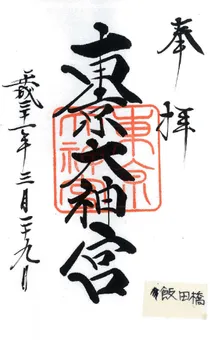 奉拝
東京大神宮
東京
大神宮
平成二十一年三月二十九日
飯田橋